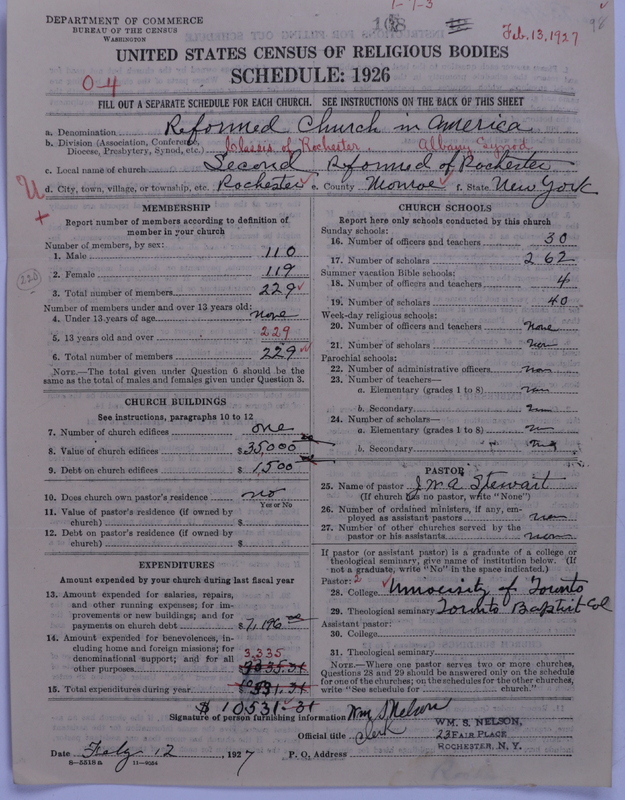 1-7-3
DEPARTMENT OF COMMERCE
BUREAU OF THE CENSUS
WASHINGTON
108
98
Feb. 13, 1927
UNITED STATES CENSUS OF RELIGIOUS BODIES
SCHEDULE: 1926
0-4
FILL OUT A SEPARATE SCHEDULE FOR EACH CHURCH. SEE INSTRUCTIONS ON THE BACK OF THIS SHEET
a. Denomination Reformed Church in America
b. Division (Association, Conference, Diocese, Presbytery, Synod, etc.) Classis of Rochester. Albany Synod
c. Local name of church Second Reformed of Rochester
d. City, town, village, or township, etc. Rochester e. County Monroe f. State New York
MEMBERSHIP
Report number of members according to definition of member in your church
Number of members, by sex:
1. Male 110
2. Female 119
220
3. Total number of members 229
Number of members under and over 13 years old:
4. Under 13 years of age none
5. 13 years old and over 229
6. Total number of members 229
NOTE.—The total given under Question 6 should be the same as the total of males and females given under Question 3.
CHURCH BUILDINGS
See instructions, paragraphs 10 to 12
7. Number of church edifices one
8. Value of church edifices $35,000
9. Debt on church edifices $1,500
10. Does church own pastor's residence no
Yes or No
11. Value of pastor's residence (if owned by church) $
12. Debt on pastor's residence (if owned by church) $
EXPENDITURES
Amount expended by your church during last fiscal year
13. Amount expended for salaries, repairs, and other running expenses; for improvements or new buildings; and for payments on church debt $7,196
14. Amount expended for benevolences, including home and foreign missions; for denominational support; and for all other purposes 3,335
15. Total expenditures during year
$10531.31
CHURCH SCHOOLS
Report here only schools conducted by this church
Sunday schools:
16. Number of officers and teachers 30
17. Number of scholars 262
Summer vacation Bible schools:
18. Number of officers and teachers 4
19. Number of scholars 40
Week-day religious schools:
20. Number of officers and teachers None
21. Number of scholars
Parochial schools:
22. Number of administrative officers
23. Number of teachers—
a. Elementary (grades 1 to 8)
b. Secondary
24. Number of scholars—
a. Elementary (grades 1 to 8)
b. Secondary
PASTOR
25. Name of pastor J.W.A. Stewart
(If church has no pastor, write "None")
26. Number of ordained ministers, if any, employed as assistant pastors
27. Number of other churches served by the pastor or his assistants
If pastor (or assistant pastor) is a graduate of a college or theological seminary, give name of institution below. (If not a graduate, write "No" in the space indicated.)
Pastor: 2
28. College University of Toronto
29. Theological seminary Toronto Baptist Col
Assistant pastor:
30. College
31. Theological seminary
NOTE.—Where one pastor serves two or more churches, Questions 28 and 29 should be answered only on the schedule for one of the churches; on the schedules for the other churches, write "See schedule for church."
Signature of person furnishing information Wm S Nelson
Official title Clerk
WM. S. NELSON,
23 FAIR PLACE
ROCHESTER, N. Y.
Date Feby 12, 1927 P. O. Address
8—5518a 11—9084